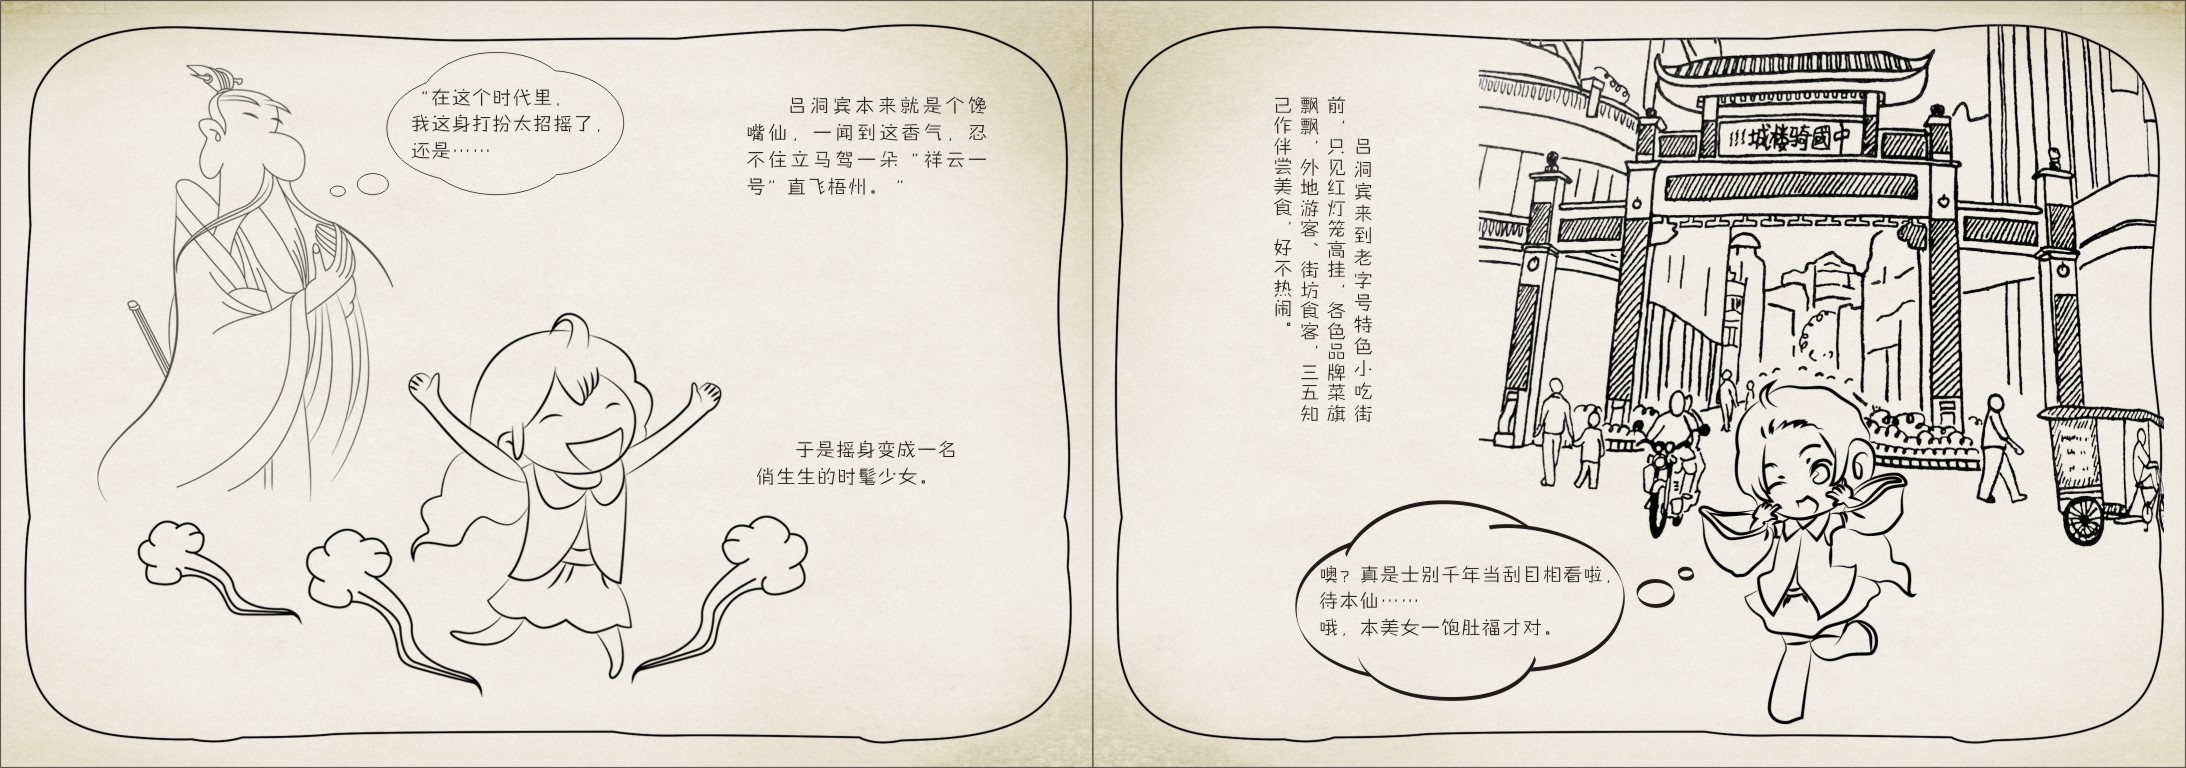 “在这个时代里，
我这身打扮太招摇了，
还是……
吕洞宾本来就是个馋
嘴仙，一闻到这香气，忍
不住立马驾一朵“祥云一
号”直飞梧州。”
于是摇身变成一名
俏生生的时髦少女。
中國骑楼城
吕洞宾来到老字号特色小吃街
前，只见红灯笼高挂，各色品牌菜旗
飘飘，外地游客、街坊食客，三五知
己作伴尝美食，好不热闹。
噢？真是士别千年当刮目相看啦，
待本仙……
哦，本美女一饱肚福才对。